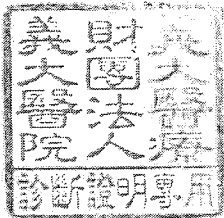 義大醫療
財團法人
義大醫院
診斷證明專用